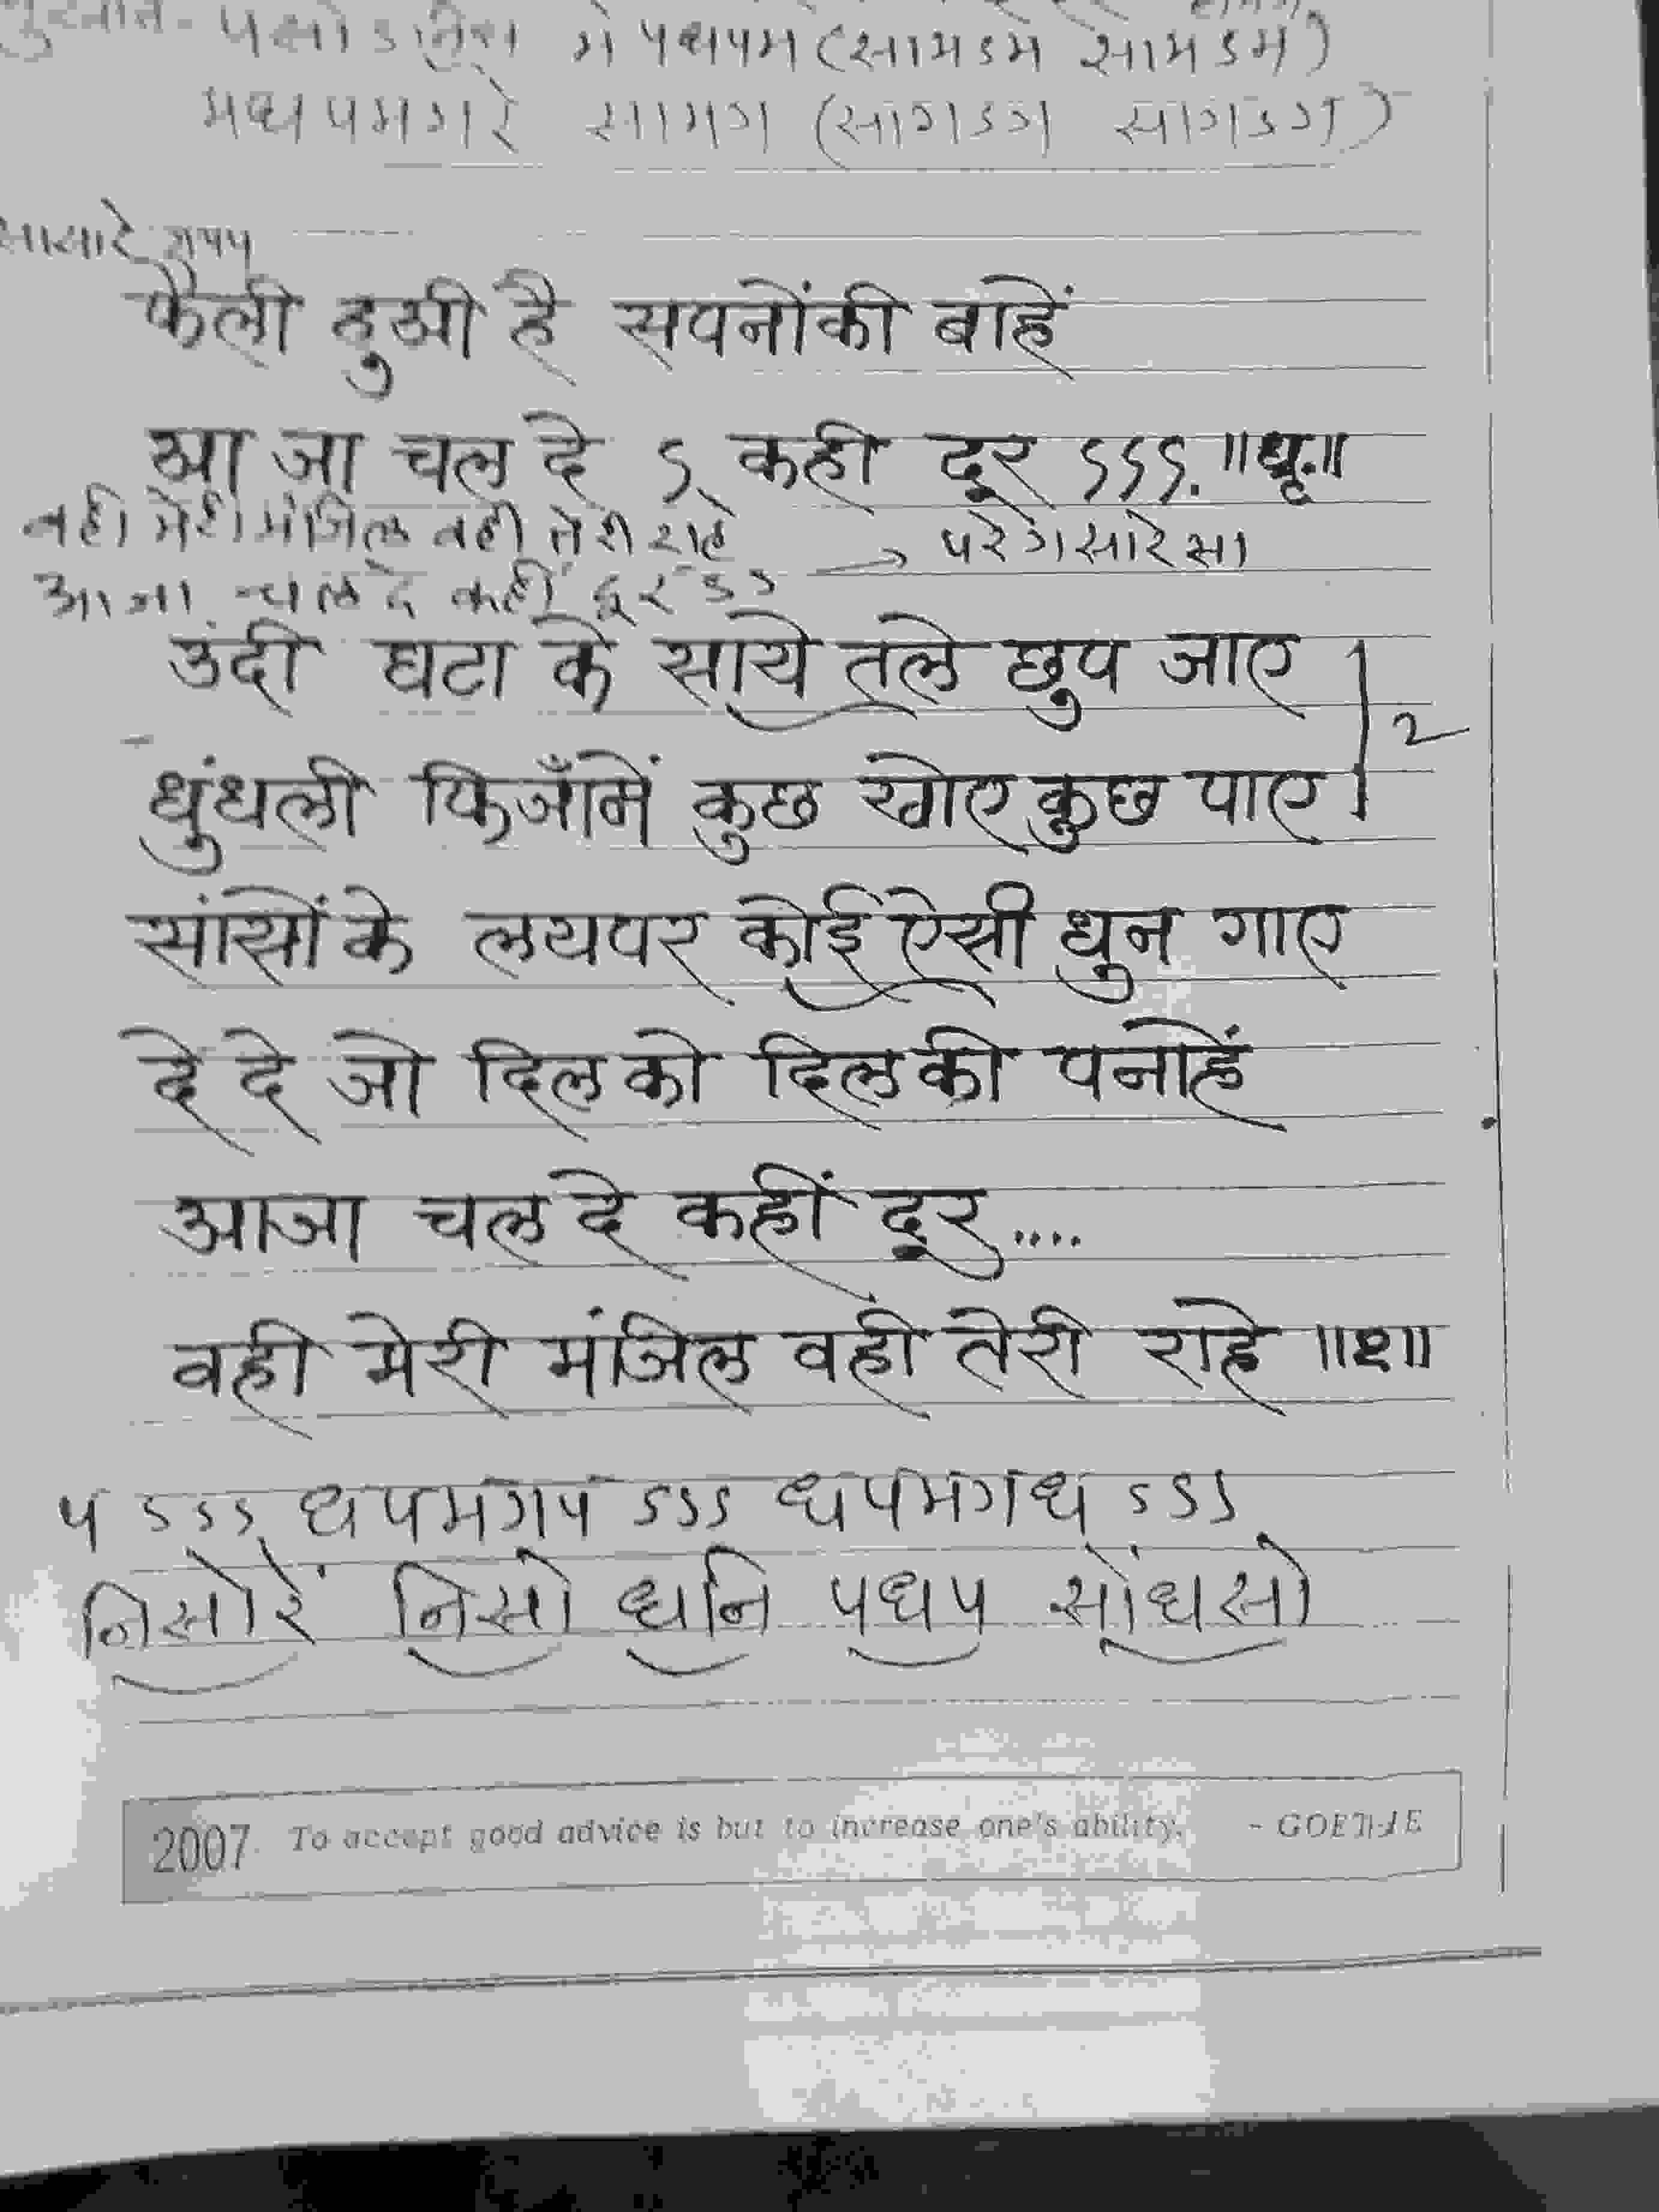 में पधपम (सामऽम सामऽम)
मधपमगरे सामग (सागऽग सागऽग)
सासारे गपप
फैली हुओी है सपनोंकी बाहें
आ जा चल दे ऽ कही दूर ऽऽऽ. ॥धृ.॥
वही मेरी मंजिल वही तेरी राहे
→ परेगसारेसा
आजा चल दे कहीं दूर ऽऽ
उंदी घटा के साये तले छुप जाए
2
धुंधली फिजाँमें कुछ खोए कुछ पाए
सांसों के लयपर कोई ऐसी धुन गाए
दे दे जो दिल को दिल की पनाहें
आजा चल दे कहीं दूर....
वही मेरी मंजिल वही तेरी राहे ॥१॥
प ऽऽऽ धपमगप ऽऽऽ धपमगध ऽऽऽ
निसांरें निसां धनि पधप सांधसां
2007 To accept good advice is but to increase one's ability. - GOETHE